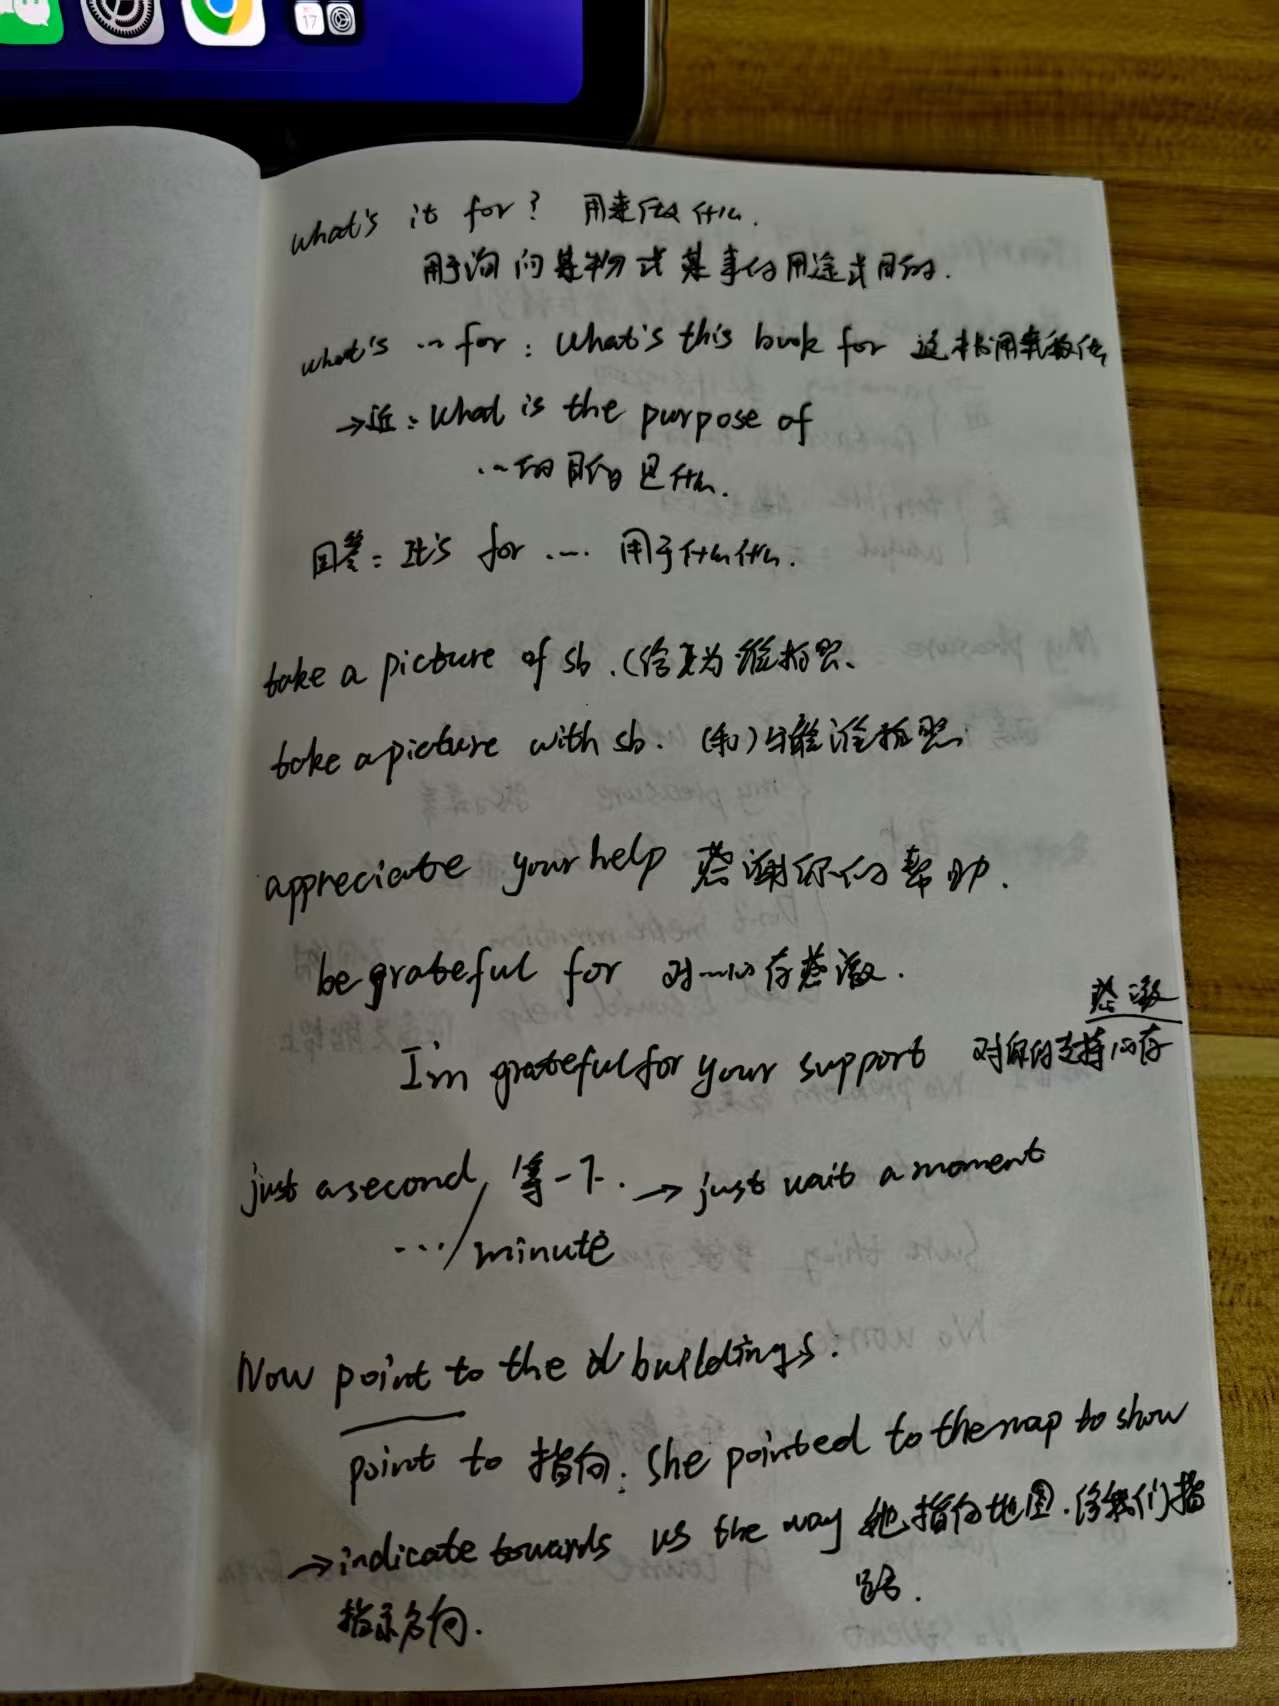 17
what's it for? 用来做什么.
用于询问某物或某事的用途或目的.
what's … for: What's this book for 这本书用来做什么
→近: What is the purpose of
…的目的是什么.
回答: It's for …. 用于什么什么.
take a picture of sb. (给)为谁拍照.
take a picture with sb. (和)与谁谁拍照.
appreciate your help 感谢你的帮助.
be grateful for 对…心存感激.
I'm grateful for your support 对你的支持心存
感激
just a second, 等一下. → just wait a moment
…/minute
Now point to the buildings.
point to 指向: She pointed to the map to show
us the way 她指向地图.给我们指
路.
→indicate towards
指示方向.